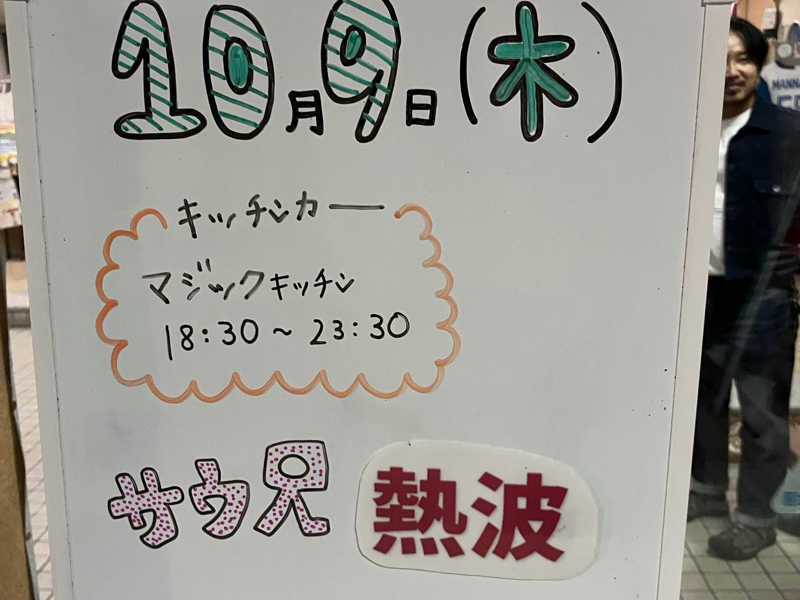 10月9日(木)
キッチンカー
マジックキッチン
18:30~23:30
サウ兄 熱波